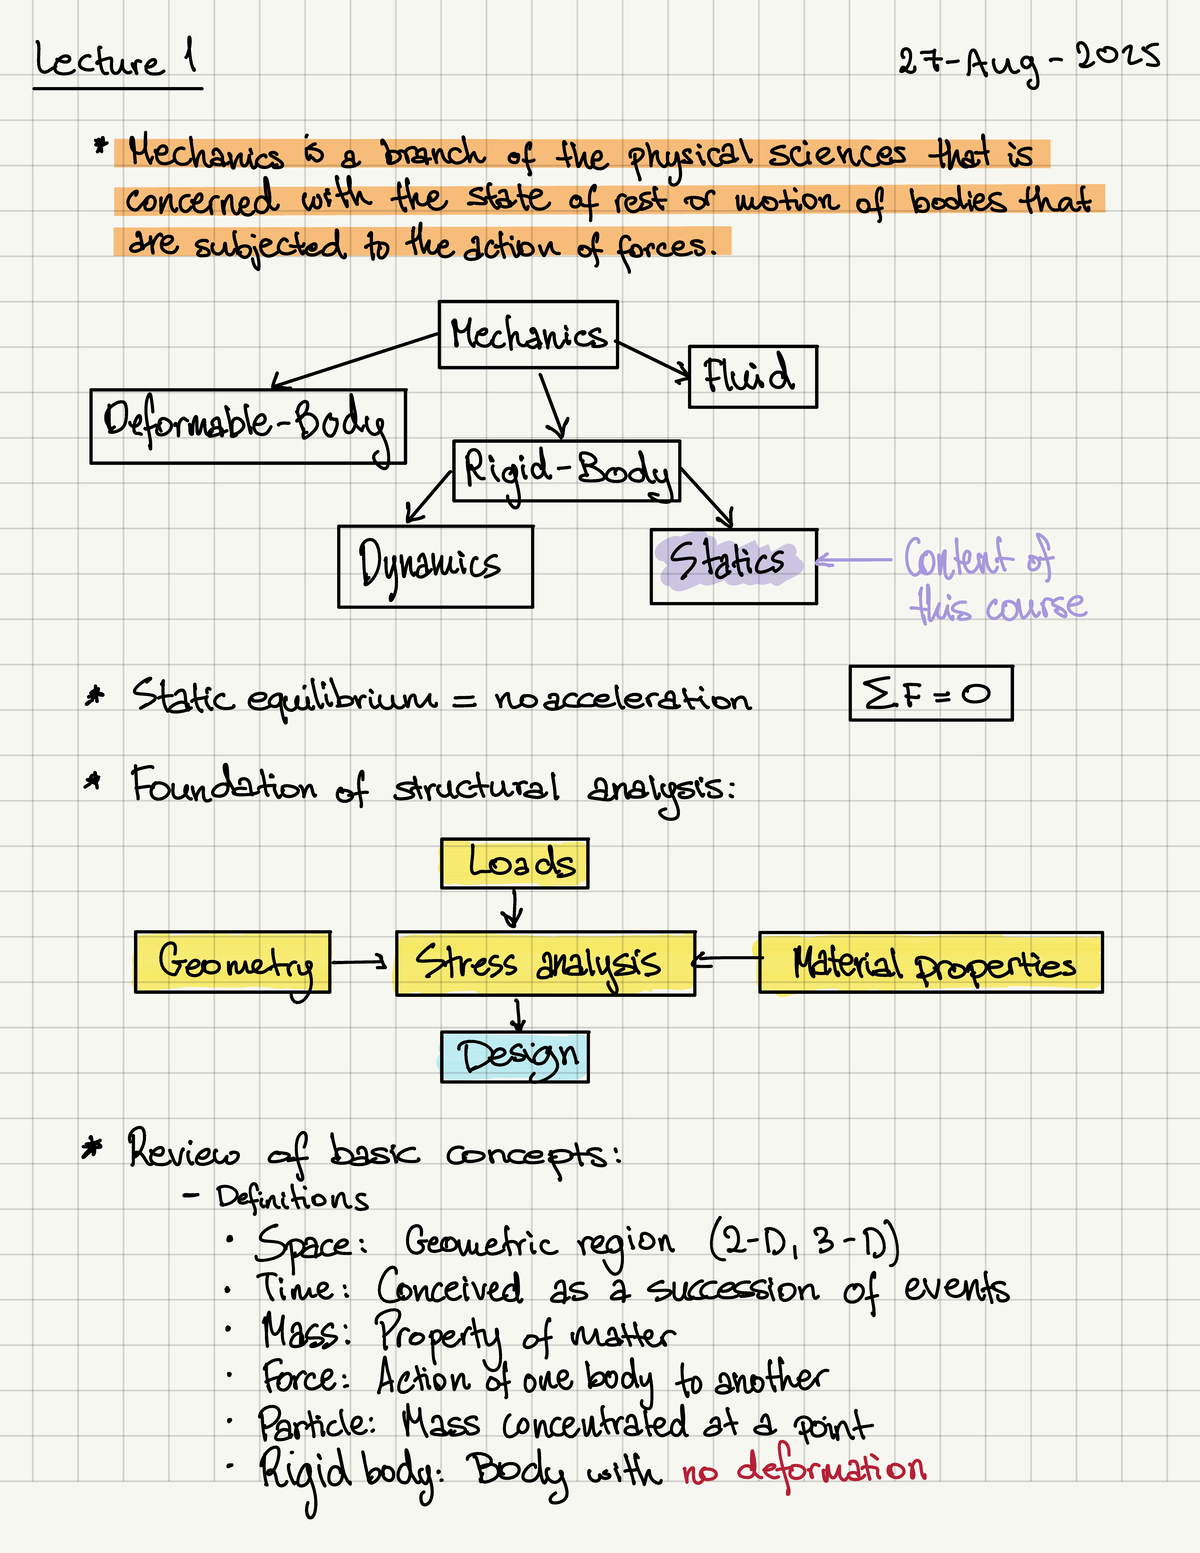 Lecture 1
27-Aug-2025
* Mechanics is a branch of the physical sciences that is
concerned with the state of rest or motion of bodies that
are subjected to the action of forces.
Mechanics
Fluid
Deformable-Body
Rigid-Body
Dynamics
Statics
Content of
this course
* Static equilibrium = no acceleration
ΣF = 0
* Foundation of structural analysis:
Loads
Geometry
Stress analysis
Material properties
Design
* Review of basic concepts:
- Definitions
· Space: Geometric region (2-D, 3-D)
· Time: Conceived as a succession of events
· Mass: Property of matter
· Force: Action of one body to another
· Particle: Mass concentrated at a point
· Rigid body: Body with no deformation